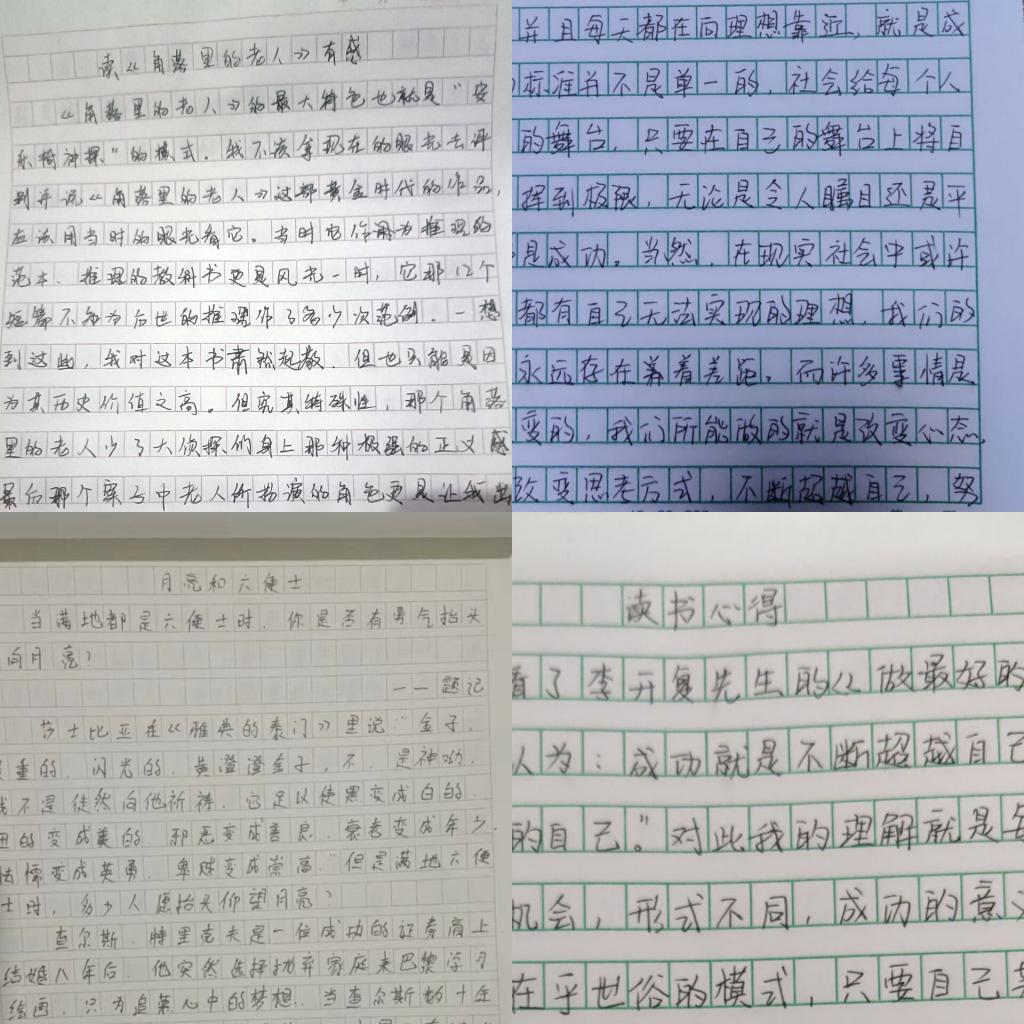 读《角落里的老人》有感
《角落里的老人》的最大特色也就是"安
乐椅神探"的模式。我不该拿现在的眼光去评
判评说《角落里的老人》这部黄金时代的作品,
应该用当时的眼光看它。当时它作为推理的
范本、推理的教科书更是风光一时,它那12个
短篇不知为后世的推理作了多少次范例。一想
到这些,我对这本书肃然起敬。但也只能是因
为其历史价值之高。但究其特殊性,那个角落
里的老人少了大侦探们身上那种极强的正义感
最后那个案子中老人所扮演的角色更是让我出
并且每天都在向理想靠近,就是成
标准并不是单一的,社会给每个人
的舞台,只要在自己的舞台上将自
挥到极限,无论是令人瞩目还是平
是成功。当然,在现实社会中或许
都有自己无法实现的理想,我们的
永远存在着差距,而许多事情是
变的,我们所能做的就是改变心态,
改变思考方式,不断超越自己,努
月亮和六便士
当满地都是六便士时,你是否有勇气抬头
向月亮?
——题记
莎士比亚在《雅典的泰门》里说:"金子,
重的、闪光的、黄澄澄金子,不,是神呦,
我不是徒然向他祈祷,它足以使黑变成白的,
丑的变成美的,邪恶变成善良,衰老变成年少,
怯懦变成英勇,卑贱变成崇高"但是满地六便
士时,多少人愿抬头仰望月亮?
查尔斯.特里克夫是一位成功的证券商上
结婚八年后,他突然选择抛弃家庭来巴黎学习
绘画,只为追寻心中的梦想。当查尔斯数十年
读书心得
看了李开复先生的《做最好的
人为:成功就是不断超越自己
的自己。"对此我的理解就是每
机会,形式不同,成功的意义
在乎世俗的模式,只要自己